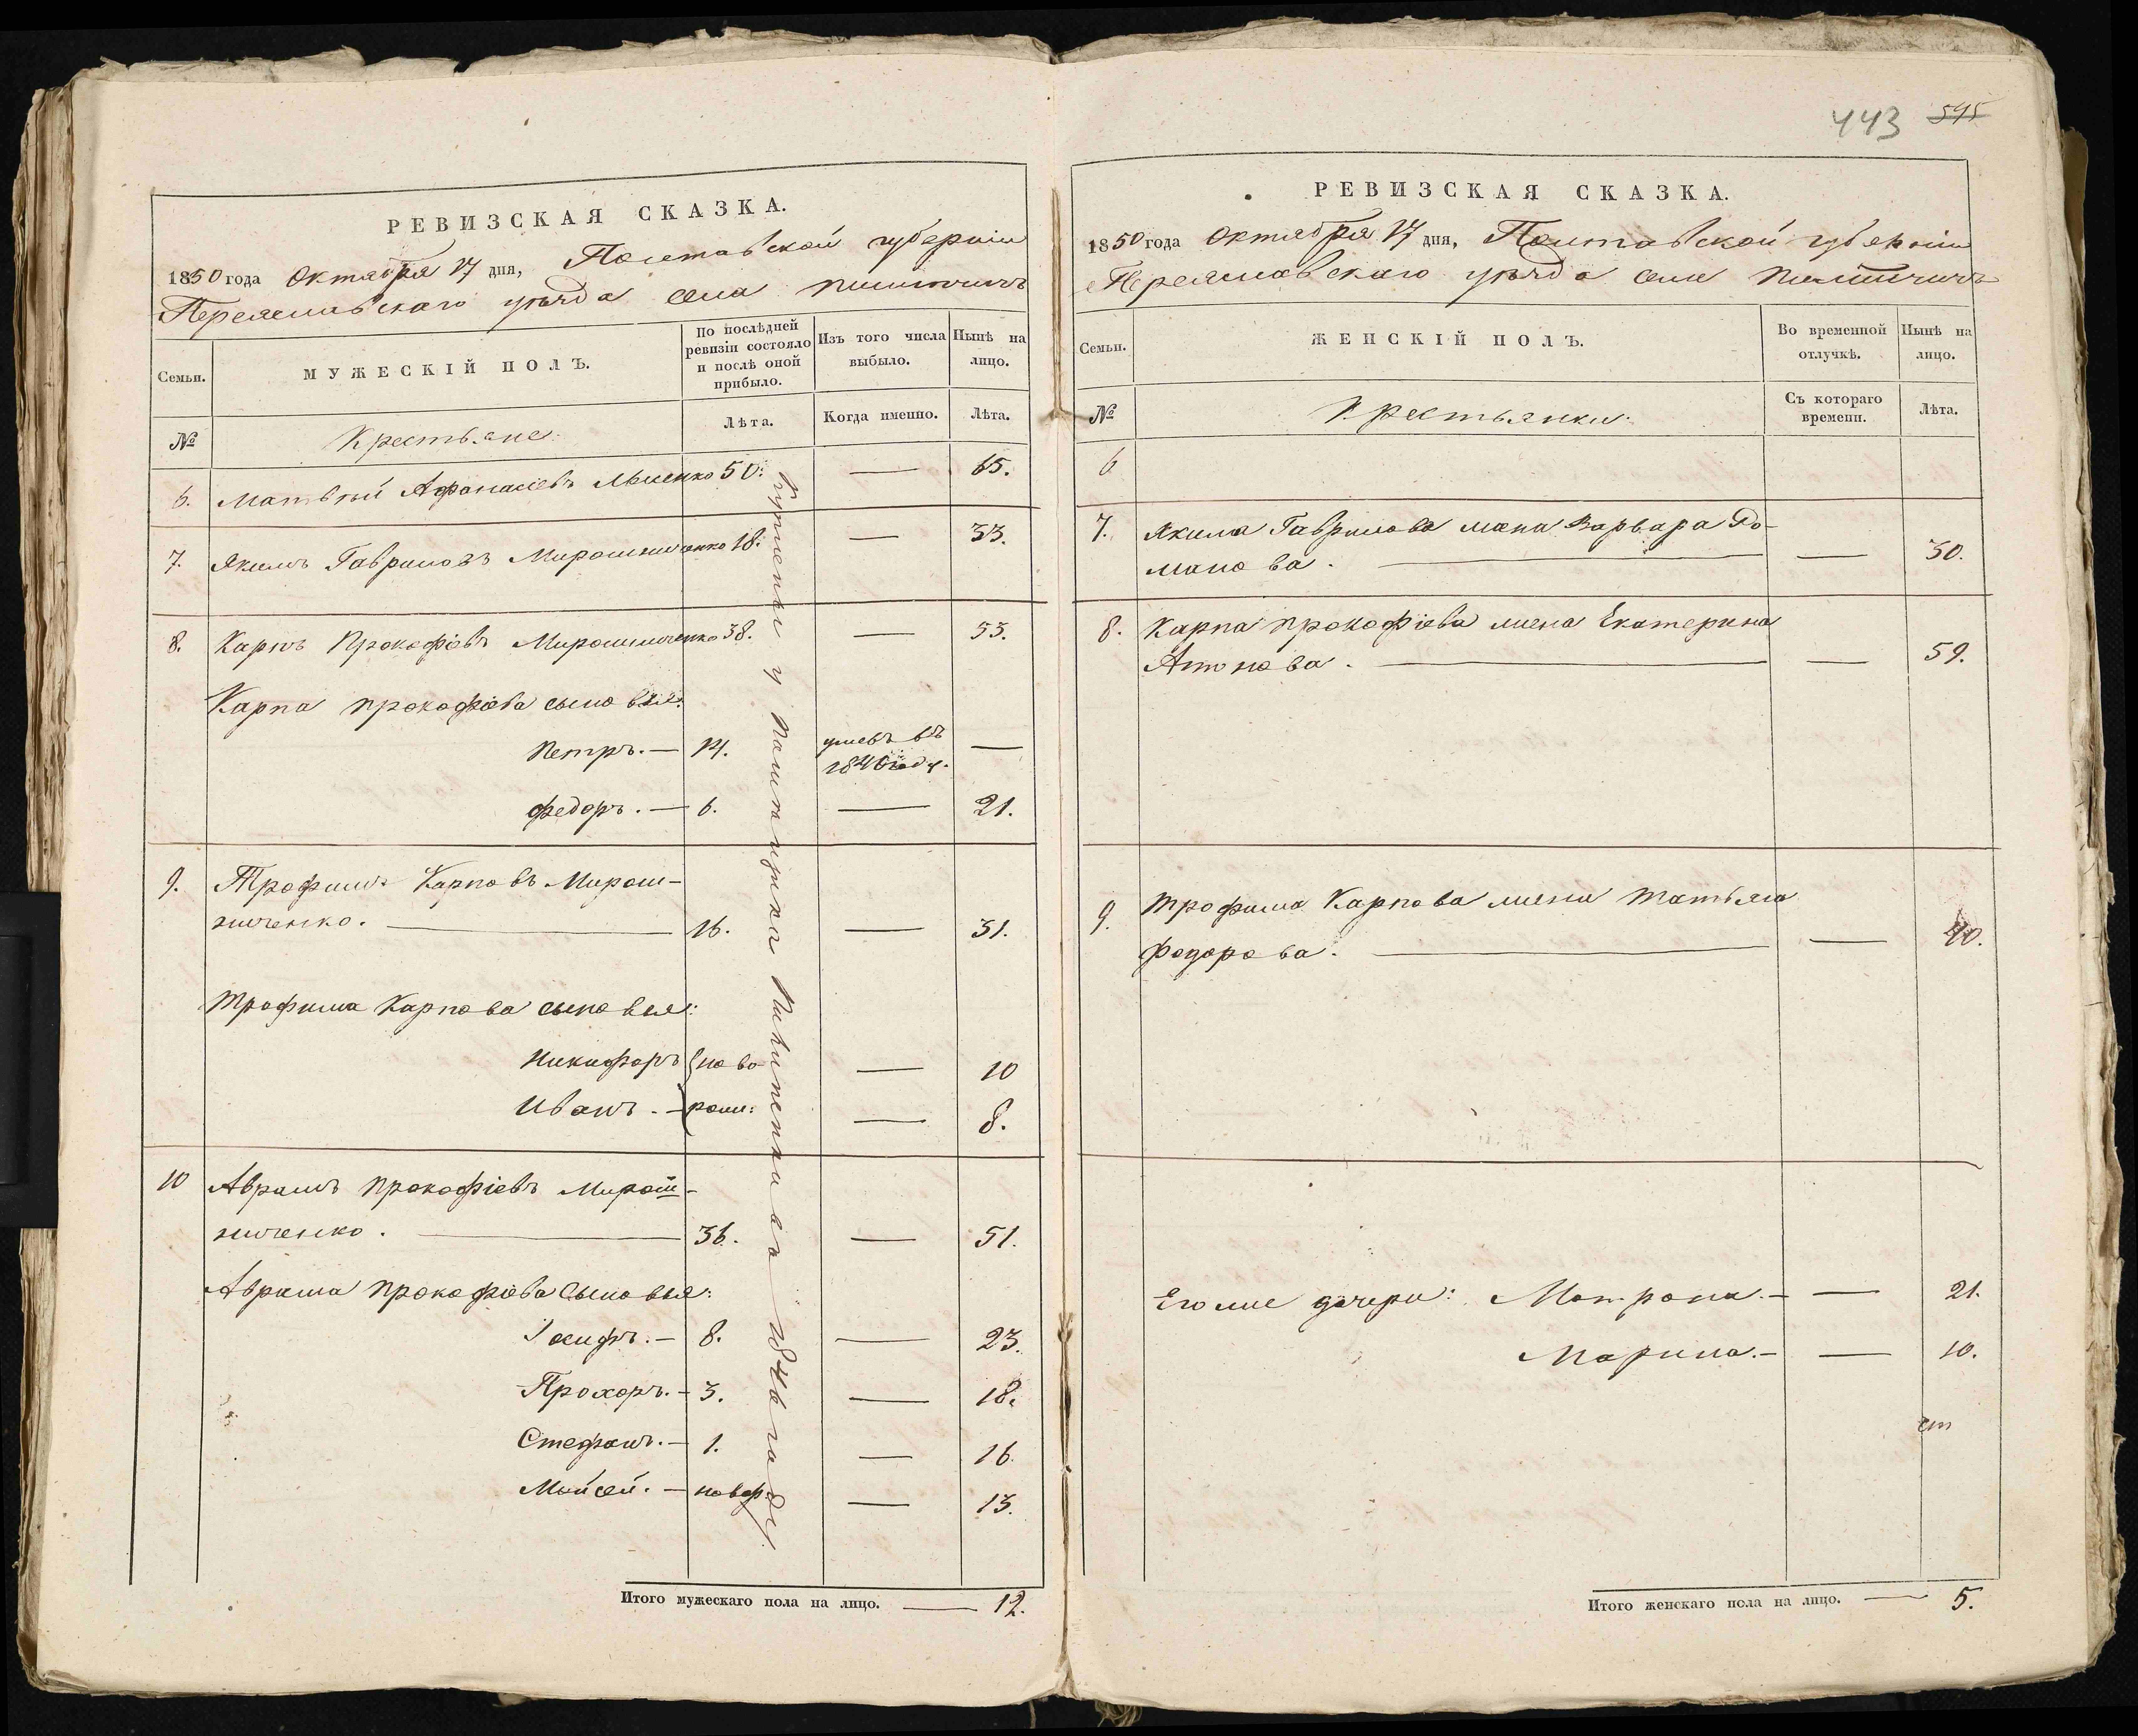 443 545
РЕВИЗСКАЯ СКАЗКА.
1850 года Октября 17 дня, Полтавской губернiи
Переяславскаго уѣзда села
Семьи.
МУЖЕСКІЙ ПОЛЪ.
По послѣдней ревизіи состояло и послѣ оной прибыло.
Изъ того числа выбыло.
Нынѣ на лицо.
№
Крестьяне:
Лѣта.
Когда именно.
Лѣта.
6. Матвѣй Афанасіевъ 50. — 65.
7. Якимъ Гавриловъ Мирошниченко 18. — 33.
8. Карпъ Прокофіевъ Мирошниченко 38. — 53.
Карпа Прокофіева сыновья:
Петръ. — 14. умеръ въ —
1846 году.
Федоръ. — 6. — 21.
9. Трофимъ Карповъ Мирош-
ниченко. — 16. — 31.
Трофима Карпова сыновья:
Никифоръ { ново — 10
Иванъ. — рожд: — 8.
10 Аврамъ Прокофіевъ Мирош-
ниченко. — 36. — 51.
Аврама Прокофіева сыновья:
Іосифъ. — 8. — 23.
Прохоръ. — 3. — 18.
Стефанъ. — 1. — 16.
Мойсей. — новор: — 13.
Купленъ у въ 1846 году.
Итого мужескаго пола на лицо. — 12.
РЕВИЗСКАЯ СКАЗКА.
1850 года Октября 17 дня, Полтавской губерніи
Переяславскаго уѣзда села
Семьи.
ЖЕНСКІЙ ПОЛЪ.
Во временной отлучкѣ.
Нынѣ на лицо.
№
Крестьянки:
Съ котораго времени.
Лѣта.
6
7. Якима Гаврилова жена Варвара Ро-
манова. — — 30.
8. Карпа Прокофіева жена Екатерина
Антонова. — — 59.
9. Трофима Карпова жена Татьяна
Федорова. — — 40.
Его же дочери: Матрона. — — 21.
Марина. — — 10.
Итого женскаго пола на лицо. — 5.